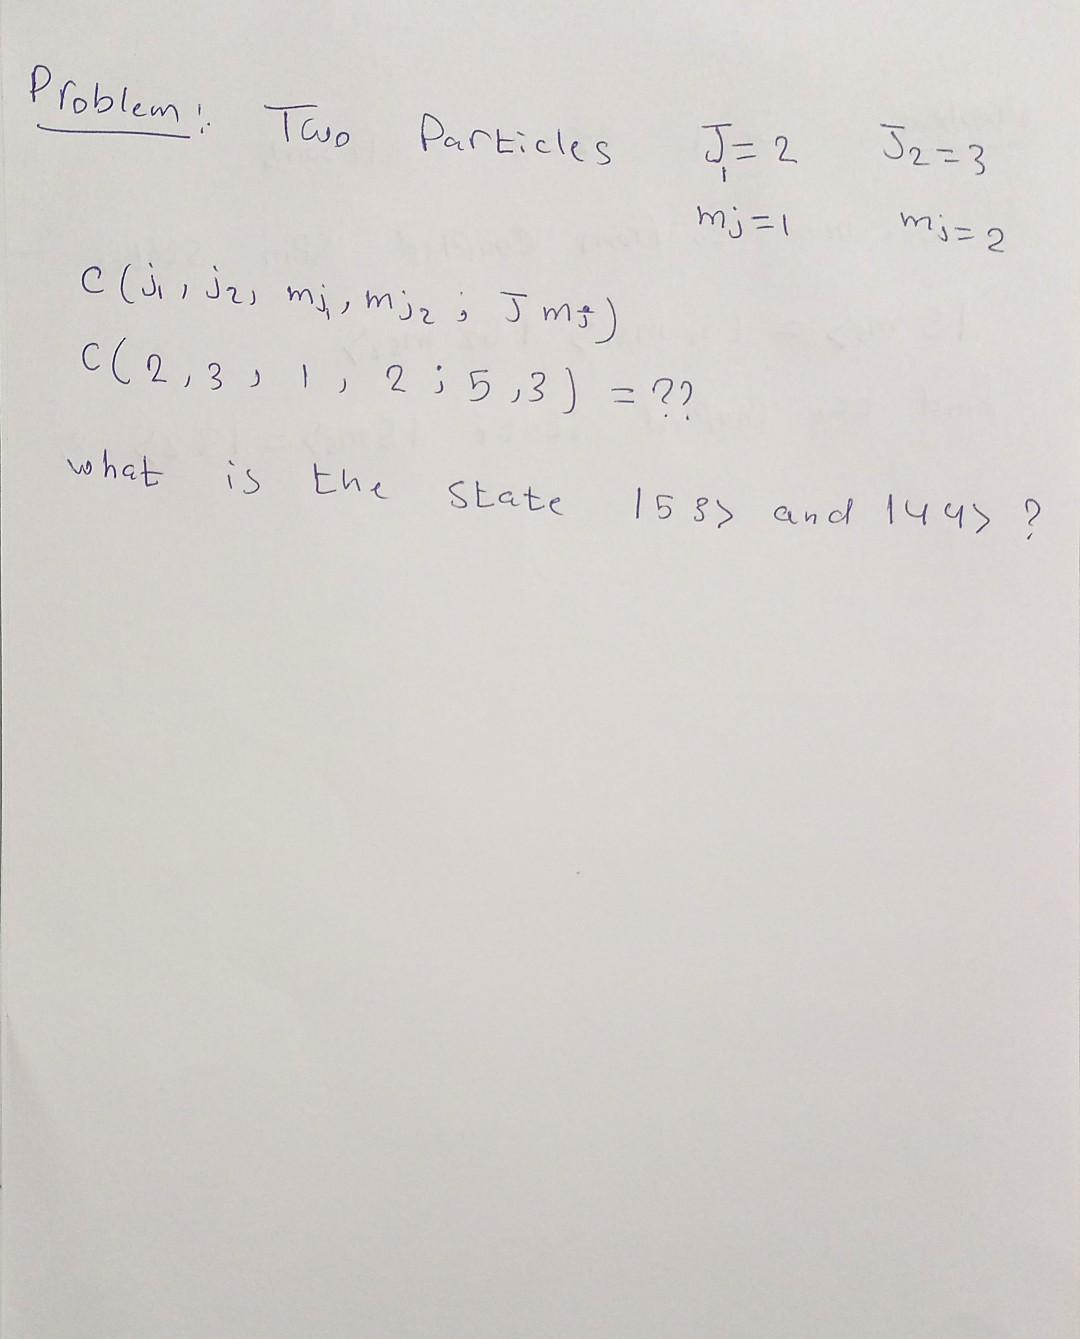 Problem: Two Particles J₁=2 J₂=3
mj=1 mj=2
C(j₁, j₂, mj₁, mj₂; J mJ)
C(2,3, 1, 2; 5,3) = ??
what is the state |53> and |44> ?